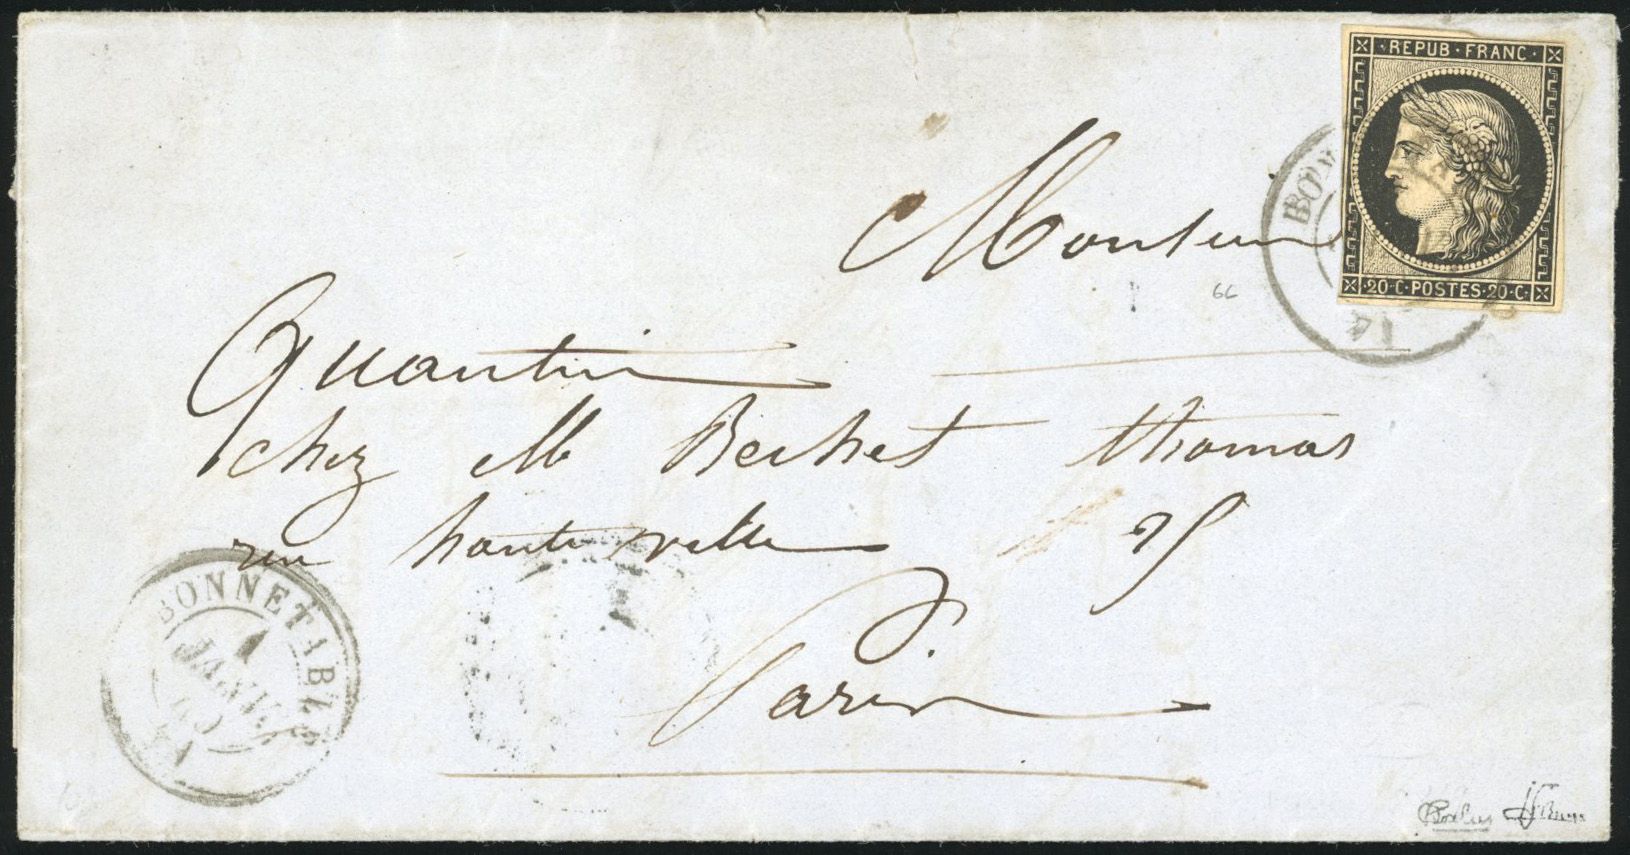 REPUB · FRANC ·
· 20 · C · POSTES · 20 · C ·
14
Monsieur
Quantin
chez M Berhet thomas
rue hauteville 25
Paris
BONNETABLE
1
JANV.